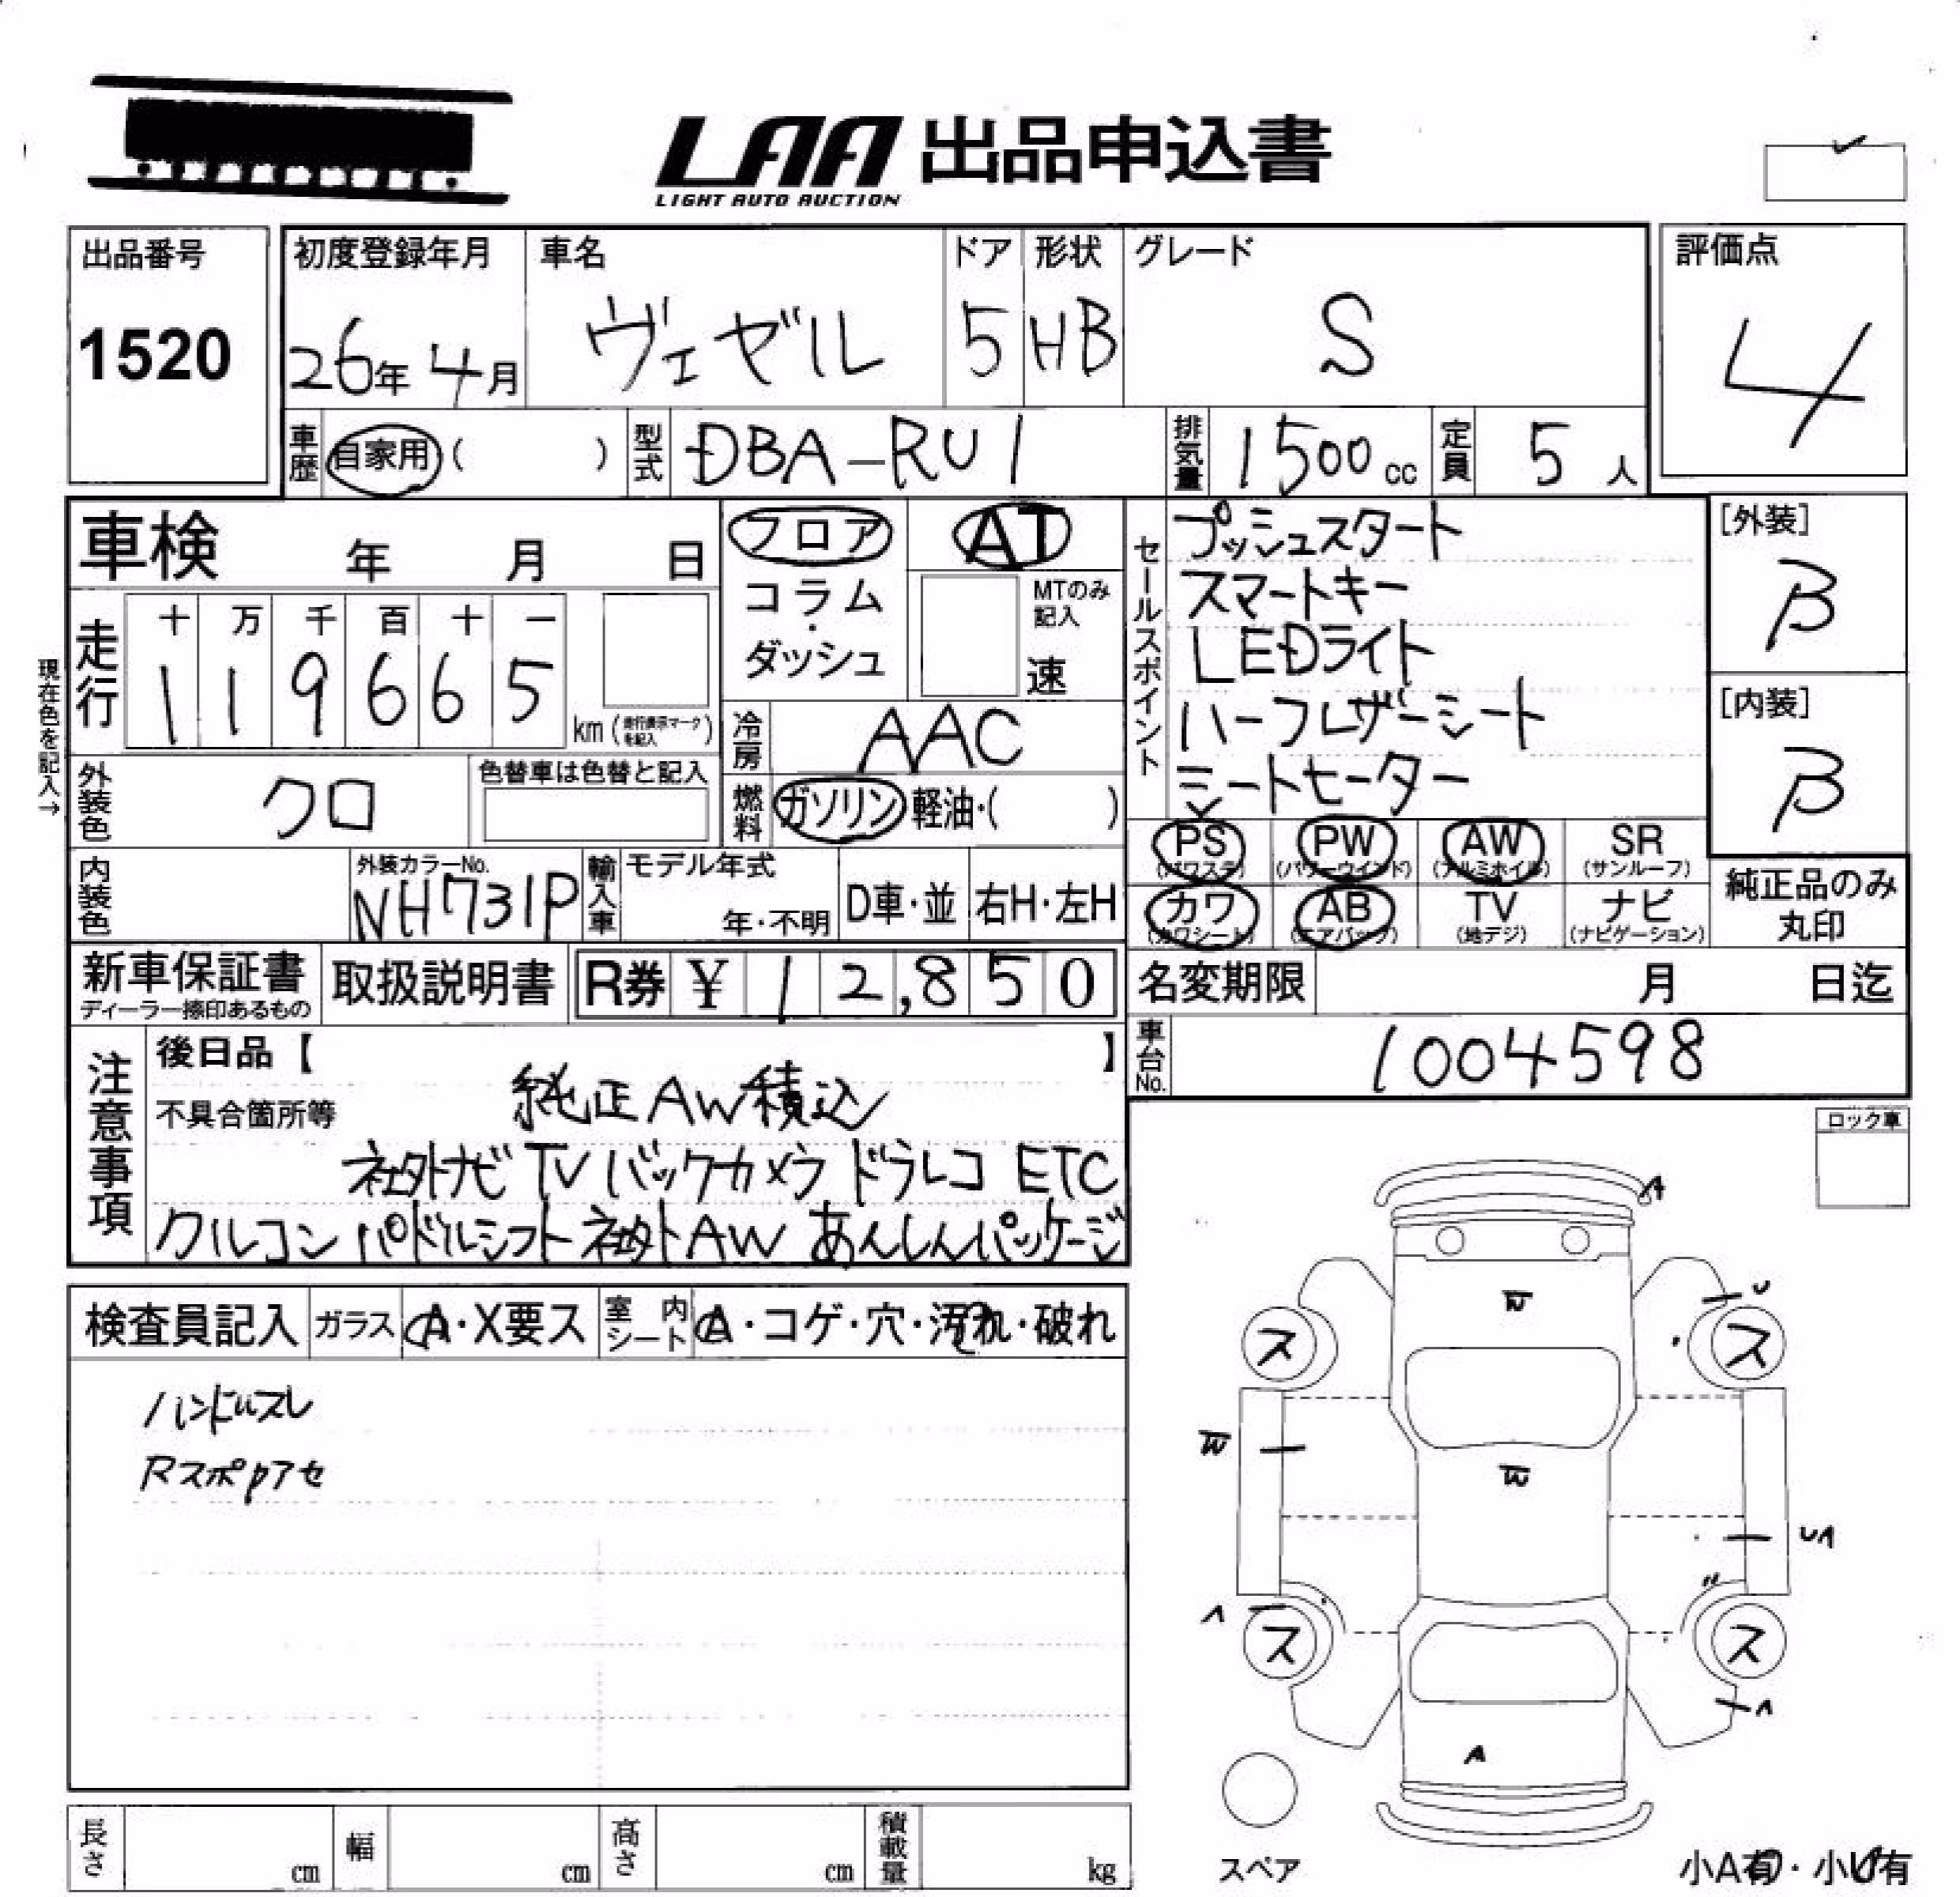 LAA 出品申込書
LIGHT AUTO AUCTION
出品番号
1520
初度登録年月
26年 4月
車名
ヴェゼル
ドア
5
形状
HB
グレード
S
評価点
4
車歴 自家用 ( )
型式 DBA-RU1
排気量 1500 cc
定員 5 人
車検 年 月 日
フロア
コラム
・
ダッシュ
AT
MTのみ
記入
速
走行
十 万 千 百 十 一
1 1 9 6 6 5
km (走行表示マークを記入)
現在色を記入→
冷房 AAC
外装色 クロ
色替車は色替と記入
燃料 ガソリン 軽油・( )
内装色
外装カラーNo.
NH731P
輸入車
モデル年式
年・不明
D車・並
右H・左H
セールスポイント
プッシュスタート
スマートキー
LEDライト
ハーフレザーシート
シートヒーター
[外装]
B
[内装]
B
PS (パワステ)
PW (パワーウインド)
AW (アルミホイル)
SR (サンルーフ)
カワ (カワシート)
AB (エアバック)
TV (地デジ)
ナビ (ナビゲーション)
純正品のみ
丸印
新車保証書
ディーラー捺印あるもの
取扱説明書
R券 ¥ 12,850
名変期限 月 日迄
車台No. 1004598
注意事項
後日品【 】
不具合箇所等
純正AW積込
社外ナビ TV バックカメラ ドラレコ ETC
クルコン パドルシフト 社外AW あんしんパッケージ
ロック車
検査員記入
ガラス A・X要ス
室内シート A・コゲ・穴・汚れ・破れ
ハンドルスレ
Rスポイロアセ
A
W
U
ス ス
W
W
UA
A
ス ス
A
A
スペア
小A有・小U有
長さ cm
幅 cm
高さ cm
積載量 kg